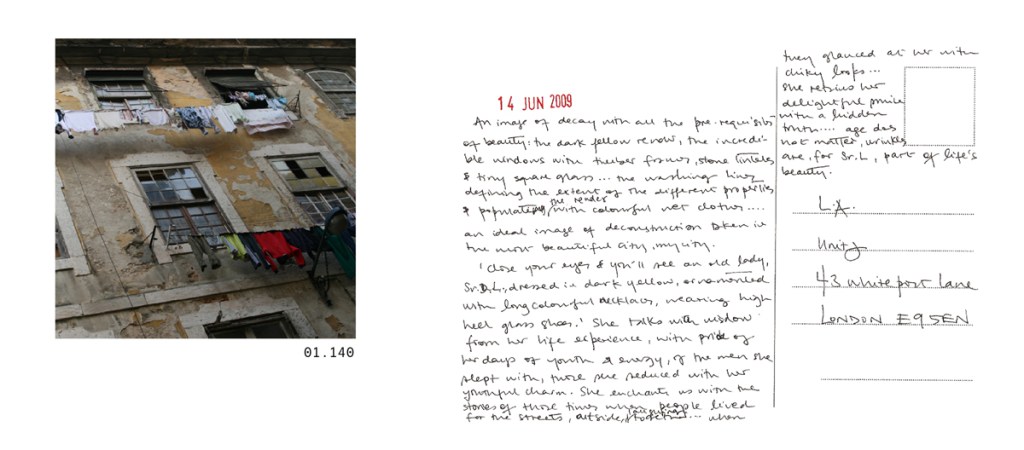 01.140
14 JUN 2009
An image of decay with all the pre-requisits
of beauty: the dark yellow render, the incredi-
ble windows with timber frames, stone lintels
& tiny square glass... the washing lines
defining the extent of the different properties
& populating the render with colourful wet clothes....
an ideal image of deconstruction taken in
the most beautiful city, my city.
'Close your eyes & you'll see an old lady,
Sr.L, dressed in dark yellow, ornamented
with long colourful necklaces, wearing high
heel glass shoes.' She talks with wisdow
from her life experience, with pride of
her days of youth & energy, of the men she
slept with, those she seduced with her
youthful charm. She enchants us with the
stories of those times when people lived
for the streets, outside, laughing together... when
they glanced at her with
chiky looks...
She retains her
delightful
with a hidden
truth.... age does
not matter, wrinkles
are, for Sr.L, part of life's
beauty.
L.A.
Unit J
43 white post lane
LONDON E9 5EN